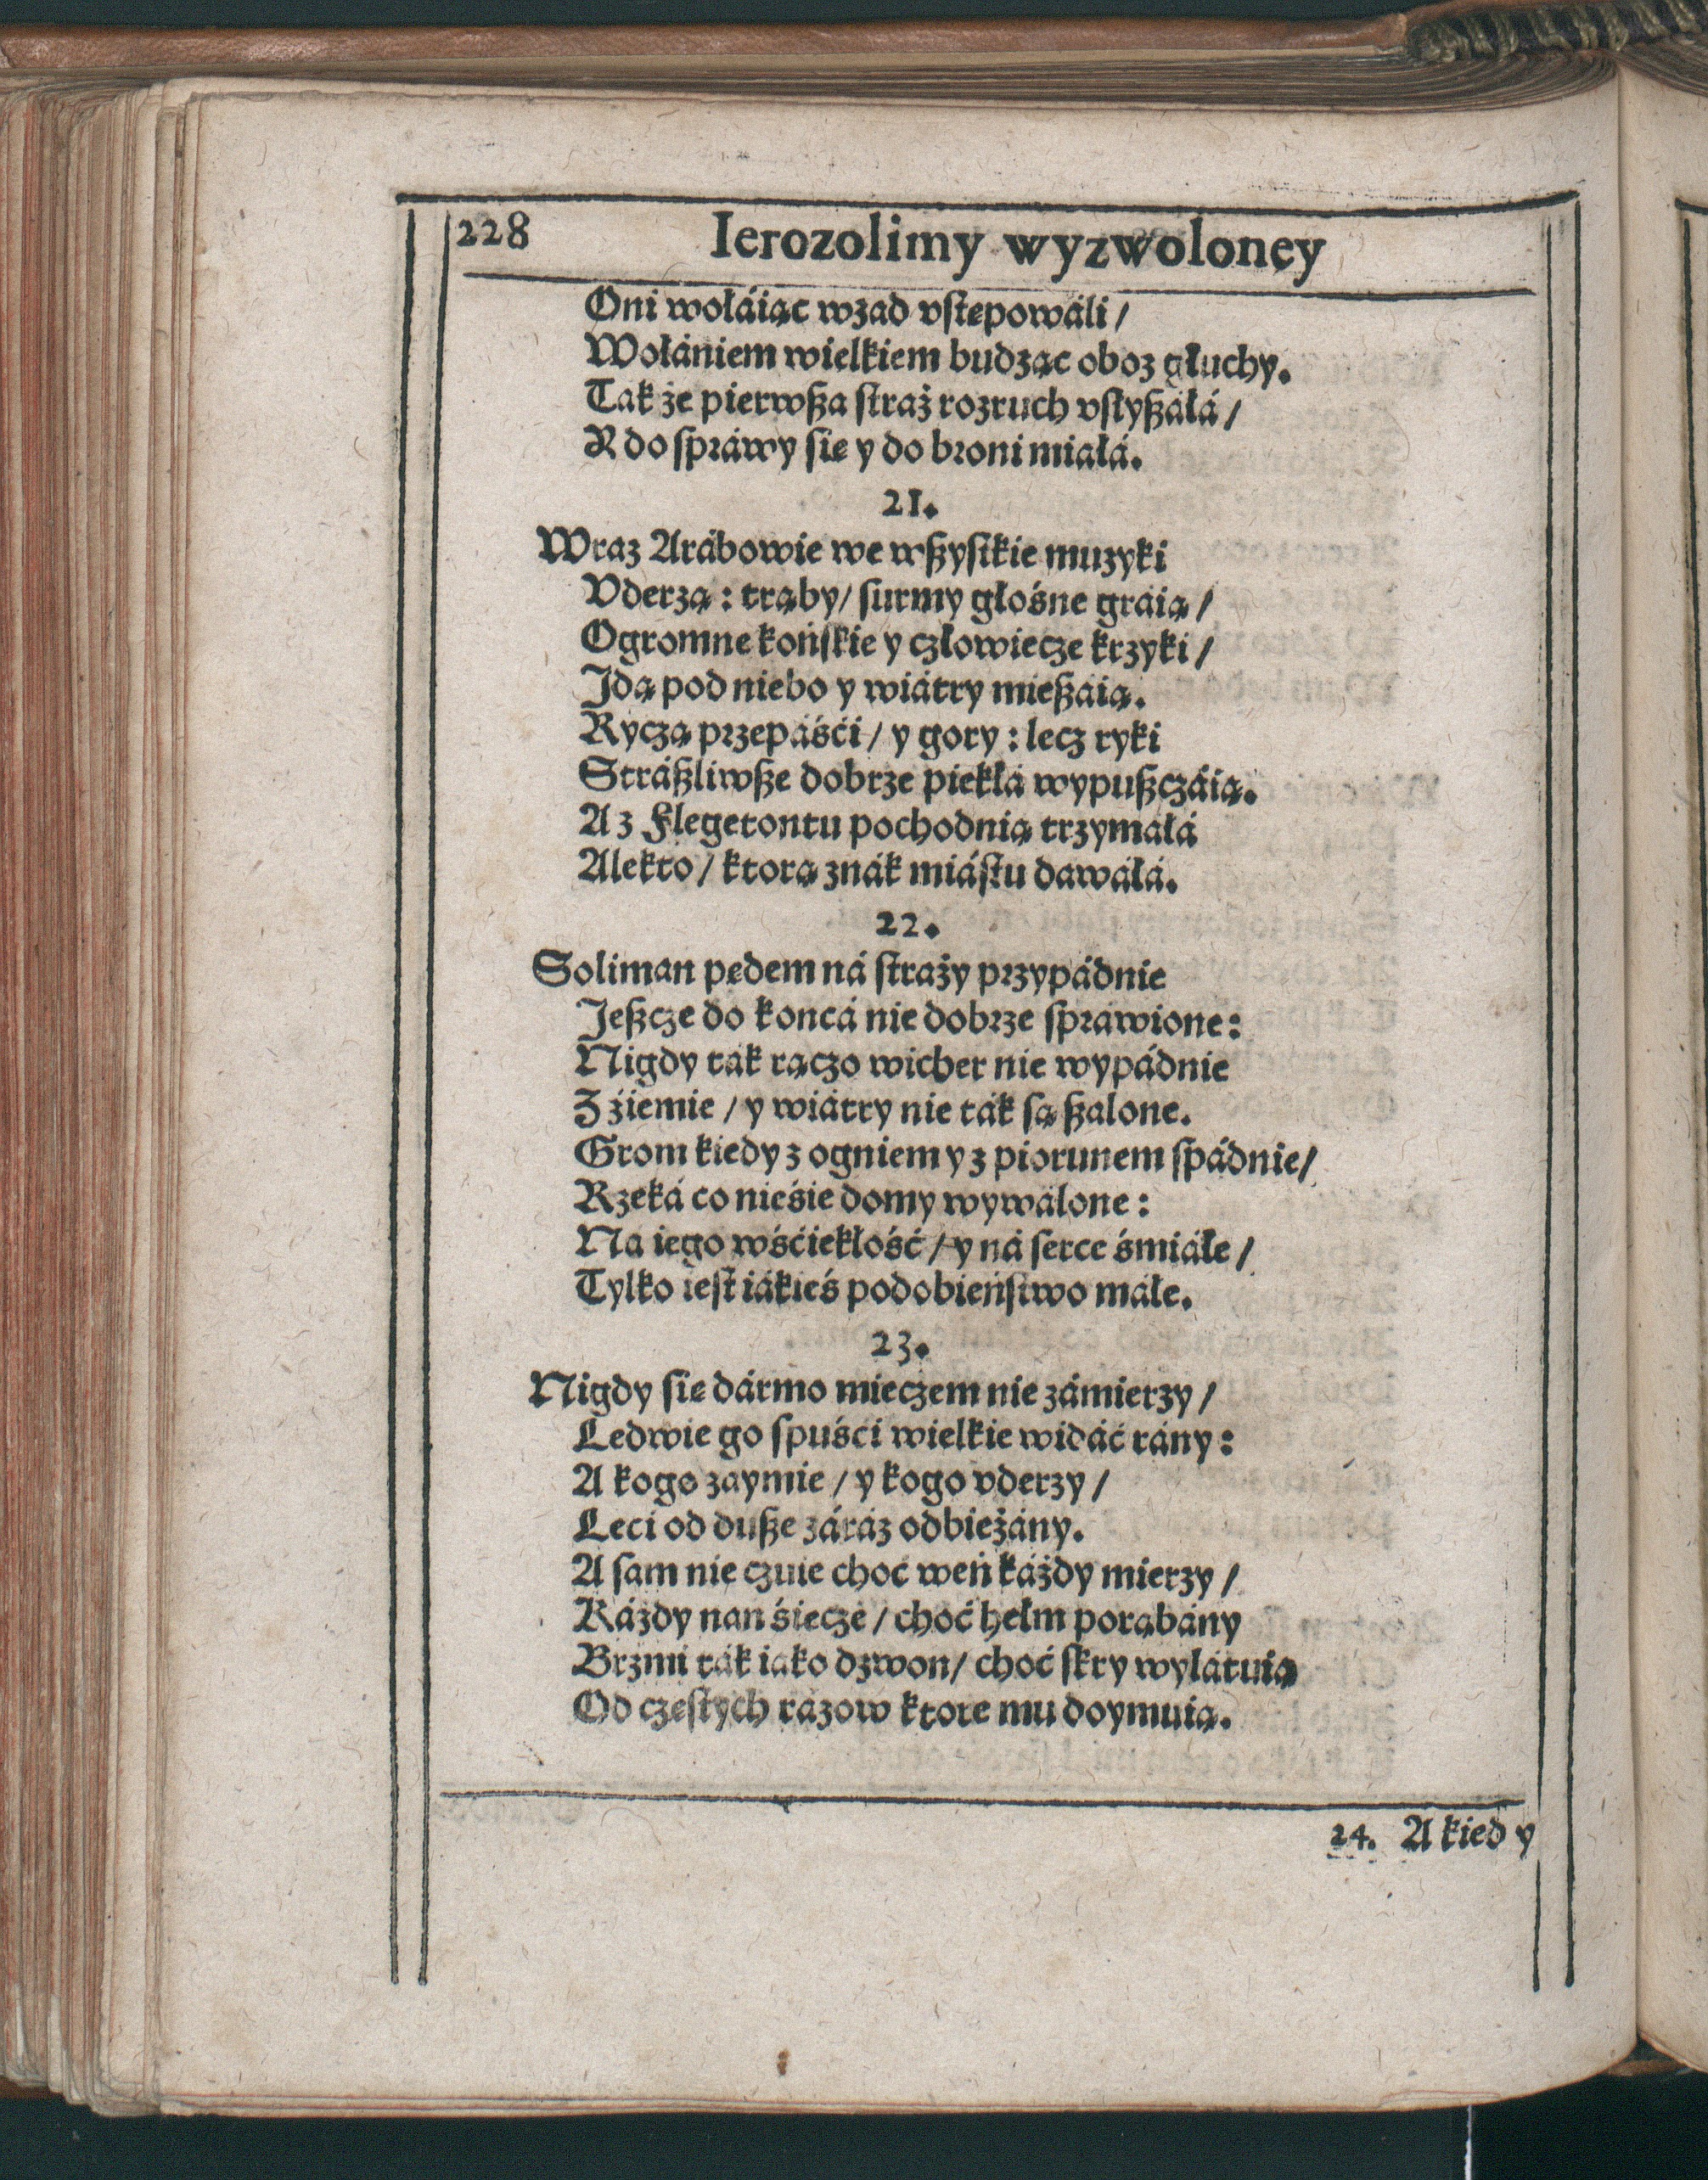 228 Ierozolimy wyzwoloney
Oni wołáiąc wzad vstępowáli /
Wołániem wielkiem budząc oboz głuchy.
Tak że pierwsza straż rozruch vsłyszáłá /
R do spráwy się y do broni miáłá.
21.
Wraz Arábowie we wszystkie muzyki
Vderzą : trąby / surmy głośne gráią /
Ogromne końskie y człowiecze krzyki /
Idą pod niebo y wiátry mieszáią.
Ryczą przepáśći / y gory : lecz ryki
Strászliwsze dobrze piekłá wypuszczáią.
A z Flegetontu pochodnią trzymáłá
Alekto / ktorą znák miástu dawáłá.
22.
Soliman pędem ná straży przypádnie
Jeszcze do końcá nie dobrze spráwione :
Nigdy ták rączo wicher nie wypádnie
Z źiemie / y wiátry nie ták są szalone.
Grom kiedy z ogniem y z piorunem spádnie /
Rzeká co nieśie domy wywálone :
Na iego wśćiekłość / y ná serce śmiáłe /
Tylko iest iákieś podobieństwo máłe.
23.
Nigdy się dármo mieczem nie zámierzy /
Ledwie go spuści wielkie widáć rány :
A kogo zaymie / y kogo vderzy /
Leci od dusze záráz odbieżány.
A sam nie czuie choć weń káżdy mierzy /
Káżdy nań śiecze / choć hełm porąbány
Brzmi ták iáko dzwon / choć skry wylátuią
Od częstych rázow ktore mu doymuią.
24. A kiedy